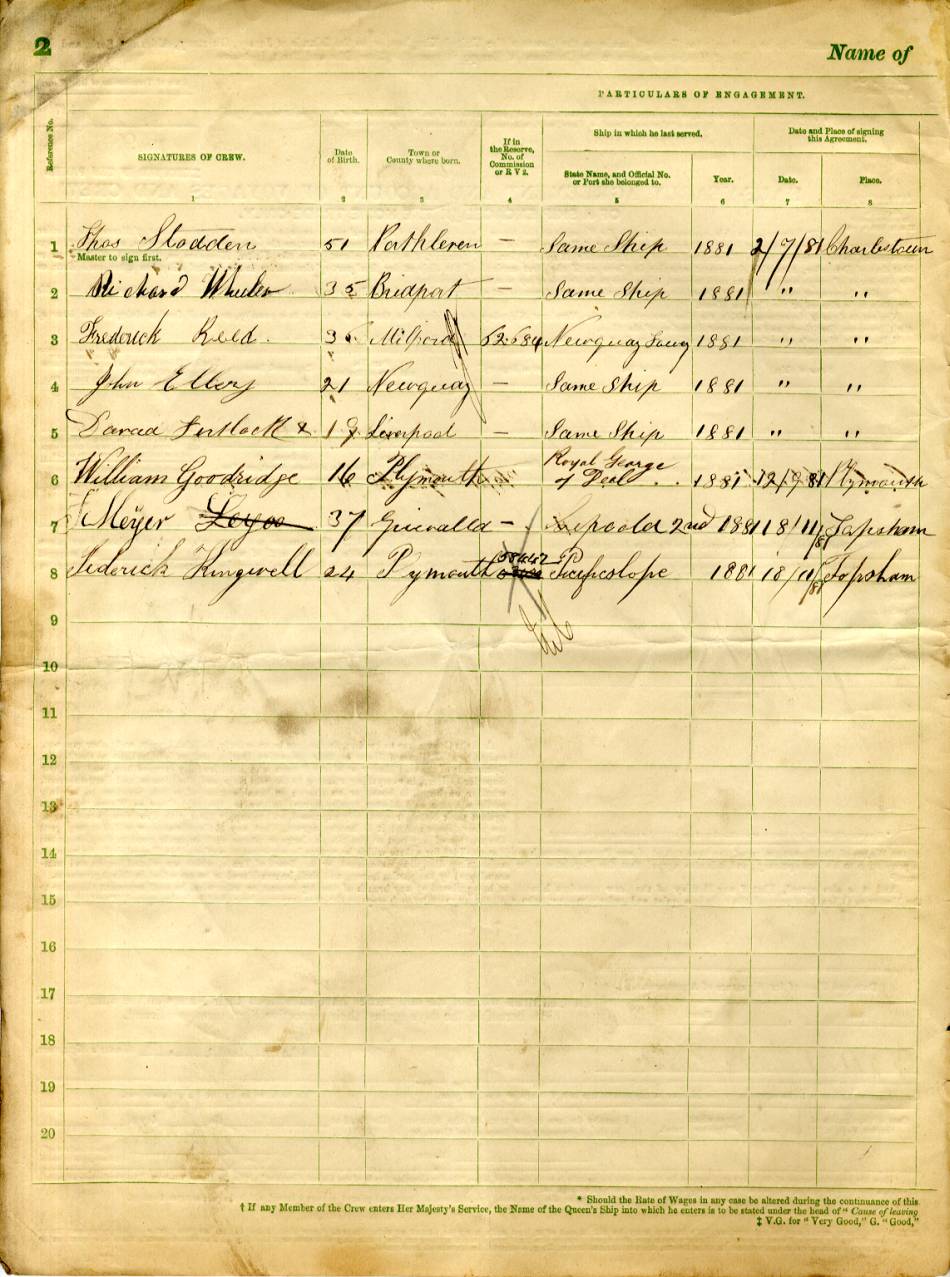 2
Name of
PARTICULARS OF ENGAGEMENT.
Reference No.
SIGNATURES OF CREW.
Date of Birth.
Town or County where born.
If in the Reserve, No. of Commission or R V 2.
Ship in which he last served.
State Name, and Official No. or Port she belonged to.
Year.
Date and Place of signing this Agreement.
Date.
Place.
1 2 3 4 5 6 7 8
1 Thos Stodden 51 Porthleven – Same Ship 1881 2/7/81 Charlestown
Master to sign first.
2 Richard Wheeler 35 Bridport – Same Ship 1881 " "
3 Frederick Reed. Milford 62.684 Newquay 1881 " "
4 John Ellery 21 Newquay – Same Ship 1881 " "
5 x Liverpool – Same Ship 1881 " "
6 William Goodridge 16 Plymouth Royal George of Deal 1881 12/9/81 Plymouth
7 Meyer 37 – 2nd 1881 18/11/81 Topsham
8 Frederick Kingwell 24 Plymouth Pacificslope 1881 18/11/81 Topsham
9
10
11
12
13
14
15
16
17
18
19
20
* Should the Rate of Wages in any case be altered during the continuance of this
† If any Member of the Crew enters Her Majesty's Service, the Name of the Queen's Ship into which he enters is to be stated under the head of "Cause of leaving
‡ V.G. for "Very Good," G. "Good,"